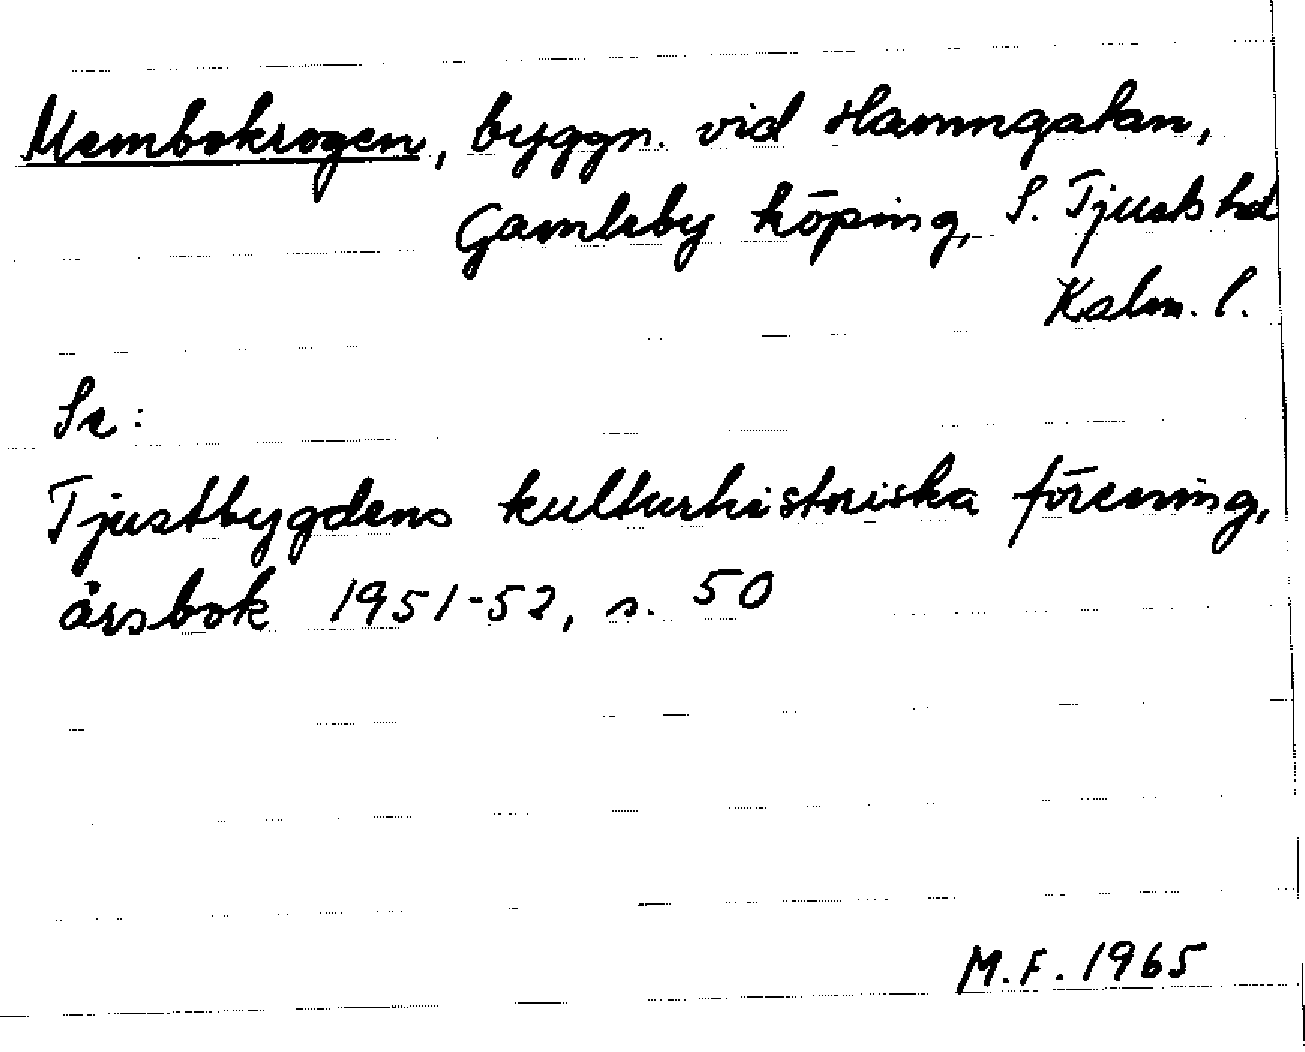 Mambokrogen, byggn. vid Hamngatan,
Gamleby köping, S. Tjusts hd
Kalm. l.
Se:
Tjustbygdens kulturhistoriska förening,
årsbok 1951-52, s. 50
M.F. 1965